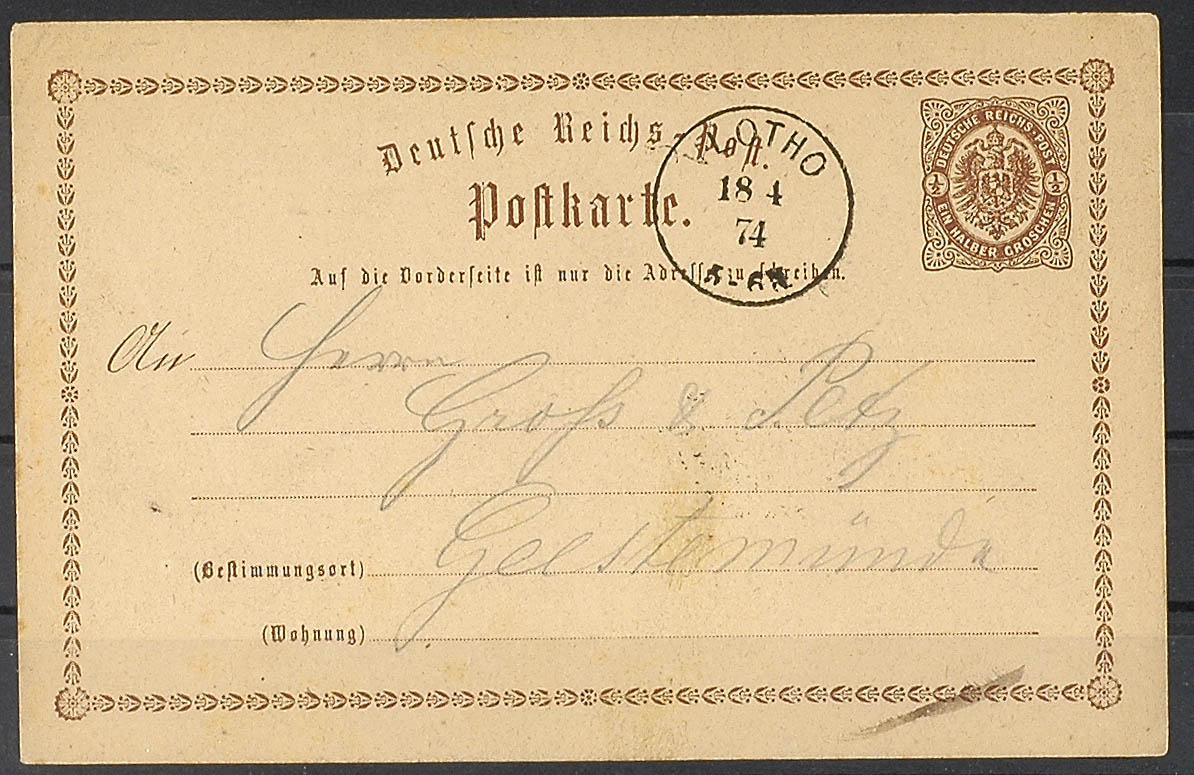 Deutsche Reichs-Post.
Postkarte.
Auf die Vorderseite ist nur die Adresse zu schreiben.
DEUTSCHE REICHS-POST
½ ½
EIN HALBER GROSCHEN
VLOTHO
18 4
74
5-6N
An Herrn
Groß & Petz
(Bestimmungsort) Geestemünde
(Wohnung)